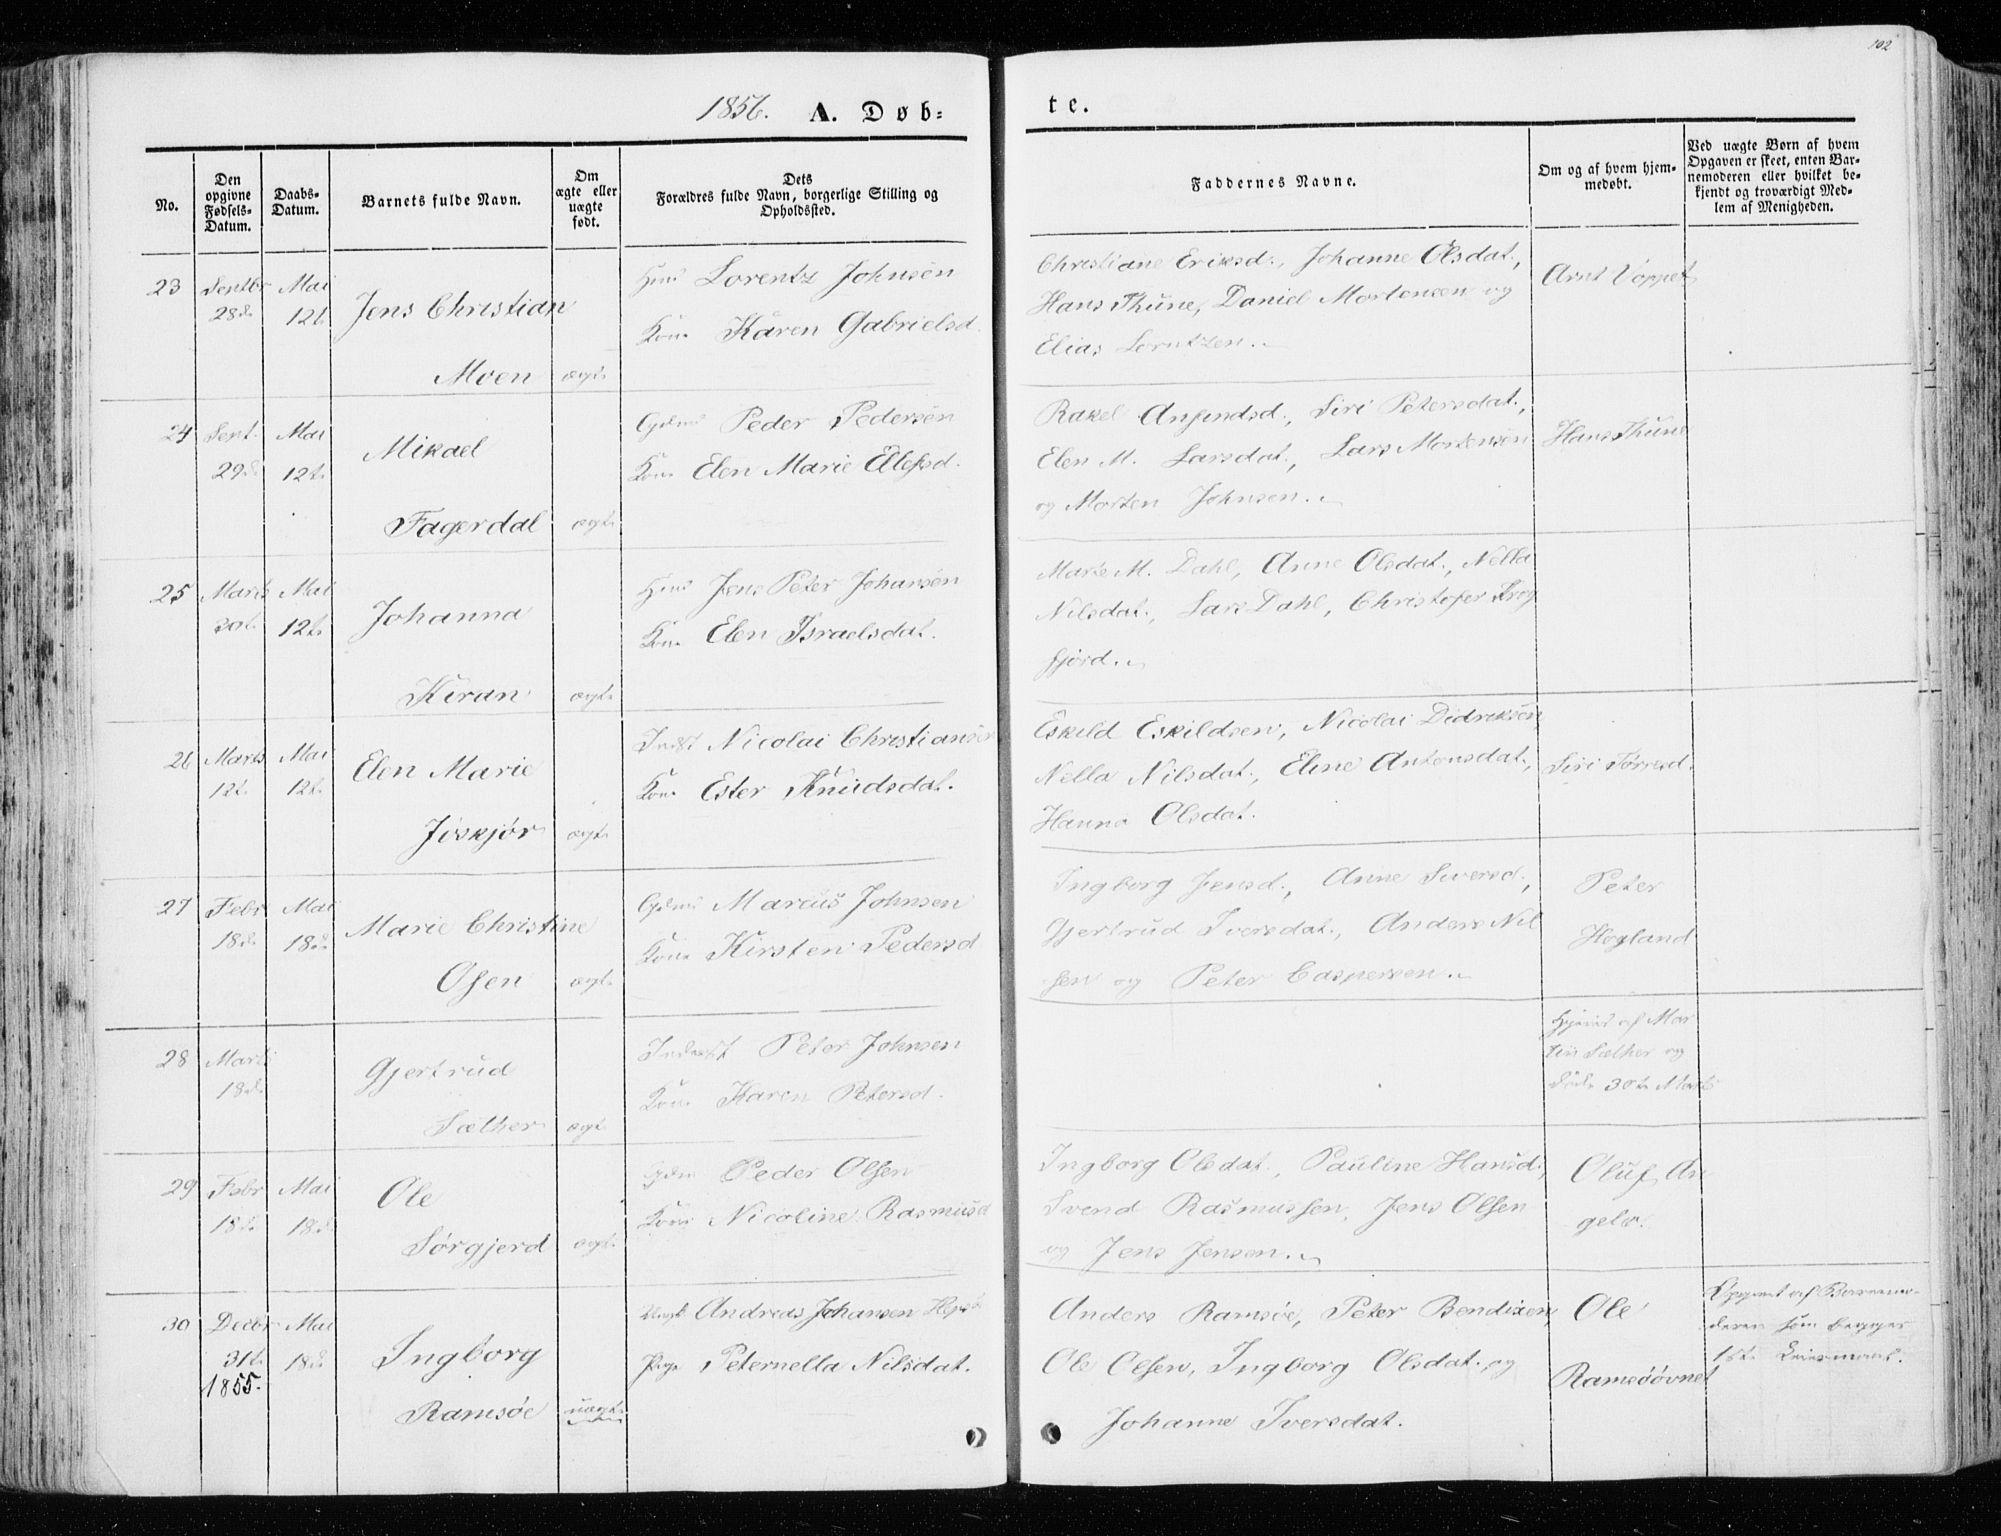 102
1856. A. Døb= te.
No.
Den opgivne Fødsels-Datum.
Daabs-Datum.
Barnets fulde Navn.
Om ægte eller uægte født.
Dets Forældres fulde Navn, borgerlige Stilling og Opholdssted.
Faddernes Navne.
Om og af hvem hjemmedøbt.
Ved uægte Børn af hvem Opgaven er skeet, enten Barnemoderen eller hvilket bekjendt og troværdigt Medlem af Menigheden.
23 Septbr Mai
28d 12t
Jens Christian
Moen ægte
Huus Lorentz Johnsen
Kone Karen Gabrielsd.
Christiane Eriksd., Johanne Olsdat.,
Hans Thune, Daniel Mortensen og
Elias Lorntzen.
Arnt Voppet
24 Sept. Mai
29d 12t
Mikael
Fagerdal ægte
Gdm Peder Pedersen
Kone Elen Marie Ellefsd.
Rakel Anfindsd., Siri Petersdat.,
Elen M. Larsdat., Lars Mortensen
og Morten Johnsen.
Hans Thune
25 Marts Mai
12t
Johanna
Kiran ægte
Huus Jens Peter Johansen
Kone Elen Israelsdat.
Marie M. Dahl, Anne Olsdat., Nella
Nilsdat., Lars Dahl, Christofer Krog
fjord.
26 Marts Mai
12t 12t
Elen Marie
Jøskjør ægte
Indst Nicolai Christiansen
Kone Ester Knudsdat.
Eskild Eskildsen, Nicolai Didriksen
Nella Nilsdat., Eline Antonsdat.,
Hanna Olsdat.
Siri Tørresd.
27 Febr Mai
18d 18d
Marie Christine
Osen ægte
Gdm Marcus Johnsen
Kone Kirsten Pedersd
Ingborg Jensd., Anne Iversd.,
Gjertrud Iversdat., Anders Nil
sen og Peter Caspersen.
Peter
Hogland
28 Marts
18d
Gjertrud
Sæther ægte
Inderst Peter Johnsen
Kone Karen Petersd.
Hjemd af Mar
tin Sæther og
døde 30te Marts
29 Febr Mai
18d 18d
Ole
Sørgjerd ægte
Gdm Peder Olsen
Kone Nicoline Rasmusd
Ingborg Olsdat., Pauline Hansd.,
Svend Rasmussen, Jens Olsen
og Jens Jensen.
Oluf An
gelv.
30 Decbr Mai
31t 18d
1855.
Ingborg
Ramsøe uægte
Ungk Andreas Johansen
Pige Peternella Nilsdat.
Anders Ramsøe, Peter Bendixen,
Ole Olsen, Ingborg Olsdat. og
Johanne Iversdat.
Ole
Ramsøövnet
Opgivet af Barnemo-
deren som begges
1ste Leiermaal.